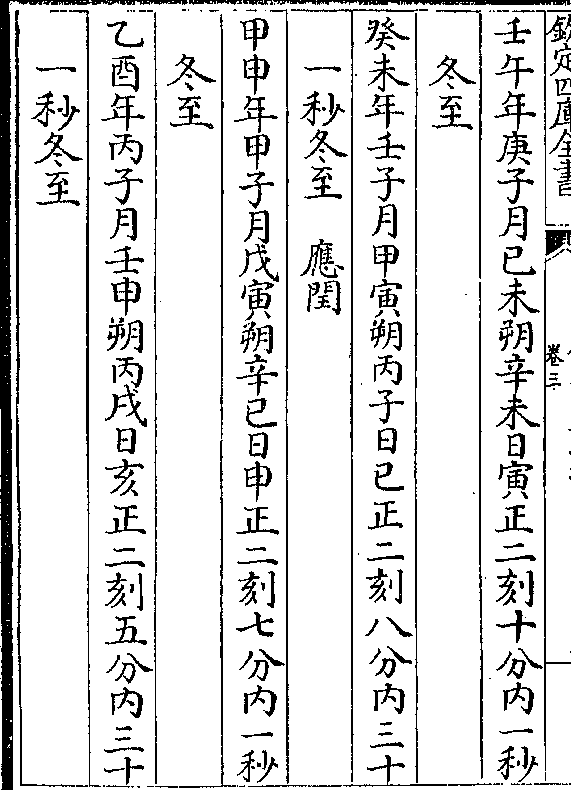 欽定四庫全書
卷三
壬午年庚子月己未朔辛未日寅正二刻十分内一秒
冬至
癸未年壬子月甲寅朔丙子日巳正二刻八分内三十
一秒冬至　應閏
甲申年甲子月戊寅朔辛巳日申正二刻七分内一秒
冬至
乙酉年丙子月壬申朔丙戌日亥正二刻五分内三十
一秒冬至